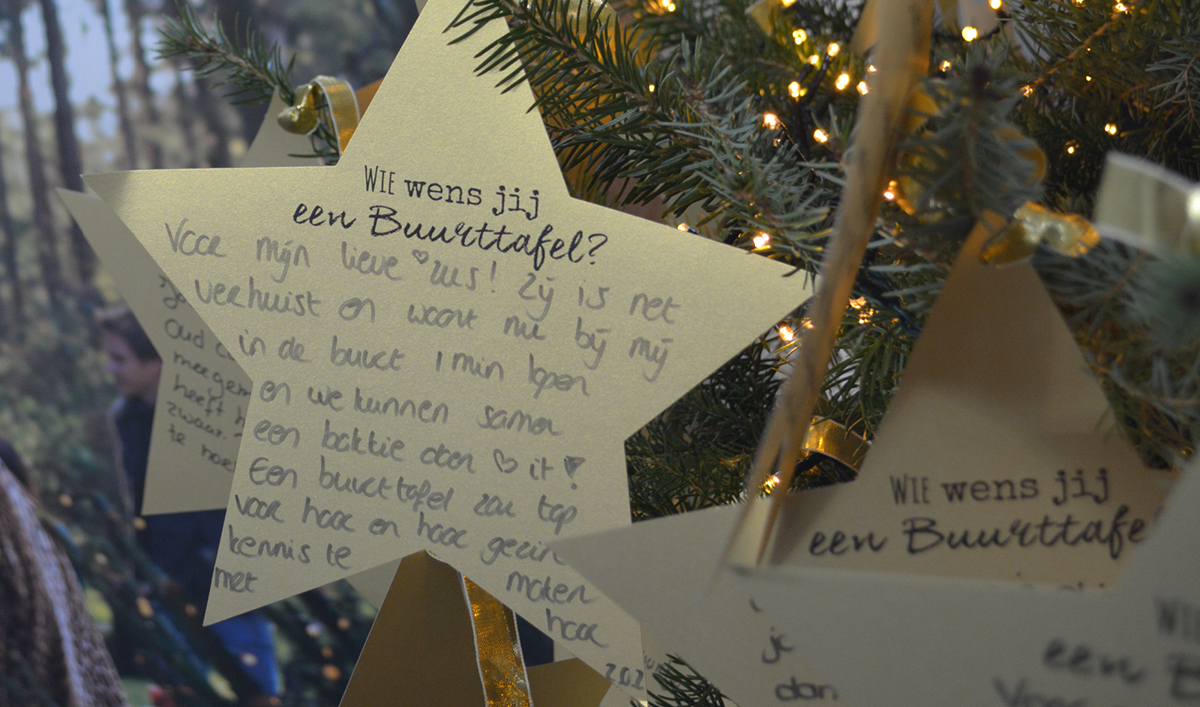 WIE wens jij
een Buurttafel?
Voor mijn lieve ♡ zus! Zij is net
verhuist en woont nu bij mij
in de buurt 1 min lopen
en we kunnen samen
een bakkie doen ♡ it!
Een buurttafel zou top
voor haar en haar gezin
kennis te maken
met haar
oud
meegem
heeft h
zwaar
te
WIE wens jij
een Buurttafe
je
dan
een B